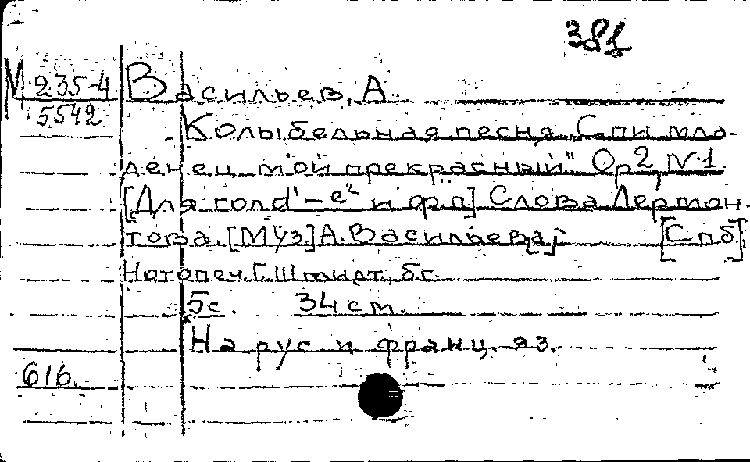 381
М 235-4
5542
Васильев, А.
Колыбельная песня. „Спи мла-
денец мой прекрасный" Op 2, № 1.
[Для гол d' – e² и ф.п] Слова Лермон-
това. [Муз] А. Васильева [Спб]
Нотопеч. Г. Шмидт, б.г.
5 с. 34 см.
На рус и франц. яз.
616.